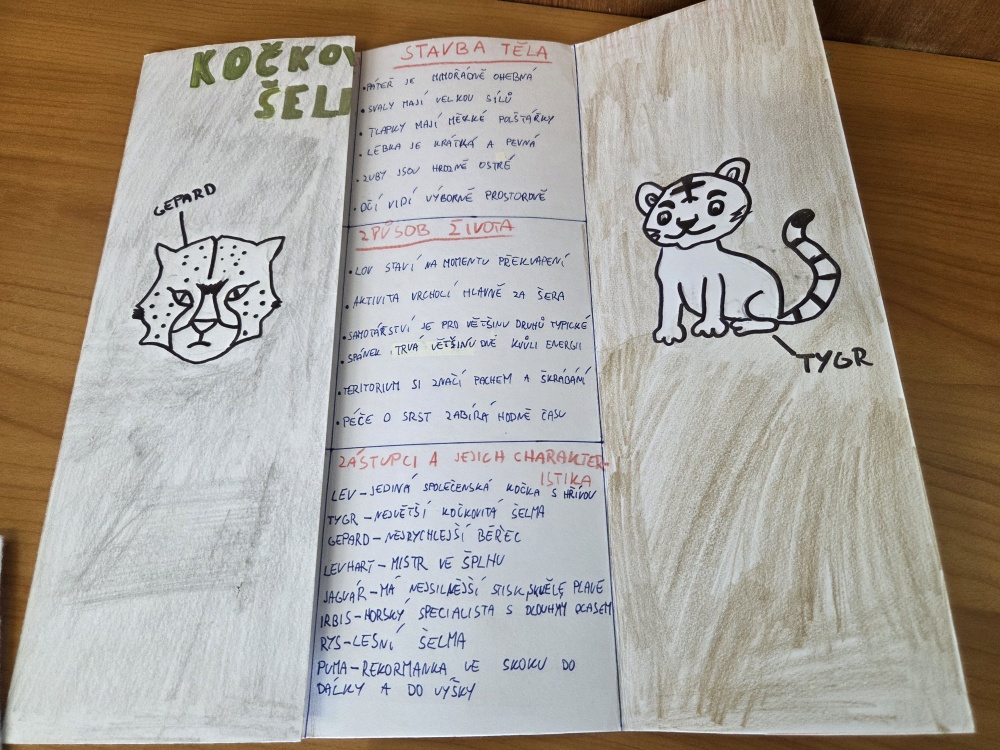 KOČKOV
ŠEL
GEPARD
STAVBA TĚLA
• PÁTEŘ JE MIMOŘÁDNĚ OHEBNÁ
• SVALY MAJÍ VELKOU SÍLU
• TLAPKY MAJÍ MĚKKÉ POLŠTÁŘKY
• LEBKA JE KRÁTKÁ A PEVNÁ
• ZUBY JSOU HROZNĚ OSTRÉ
• OČI VIDÍ VÝBORNĚ PROSTOROVĚ
ZPŮSOB ŽIVOTA
• LOV STAVÍ NA MOMENTU PŘEKVAPENÍ
• AKTIVITA VRCHOLÍ HLAVNĚ ZA ŠERA
• SAMOTÁŘSTVÍ JE PRO VĚTŠINU DRUHŮ TYPICKÉ
• SPÁNEK TRVÁ VĚTŠINU DNE KVŮLI ENERGII
• TERITORIUM SI ZNAČÍ PACHEM A ŠKRÁBÁNÍ
• PÉČE O SRST ZABÍRÁ HODNĚ ČASU
ZÁSTUPCI A JEJICH CHARAKTER-
ISTIKA
LEV – JEDINÁ SPOLEČENSKÁ KOČKA S HŘÍVOU
TYGR – NEJVĚTŠÍ KOČKOVITÁ ŠELMA
GEPARD – NEJRYCHLEJŠÍ BĚŘEC
LEVHART – MISTR VE ŠPLHU
JAGUÁR – MÁ NEJSILNĚJŠÍ STISK, SKVĚLE PLAVE
IRBIS – HORSKÝ SPECIALISTA S DLOUHÝM OCASEM
RYS – LESNÍ ŠELMA
PUMA – REKORMANKA VE SKOKU DO
DÁLKY A DO VÝŠKY
TYGR